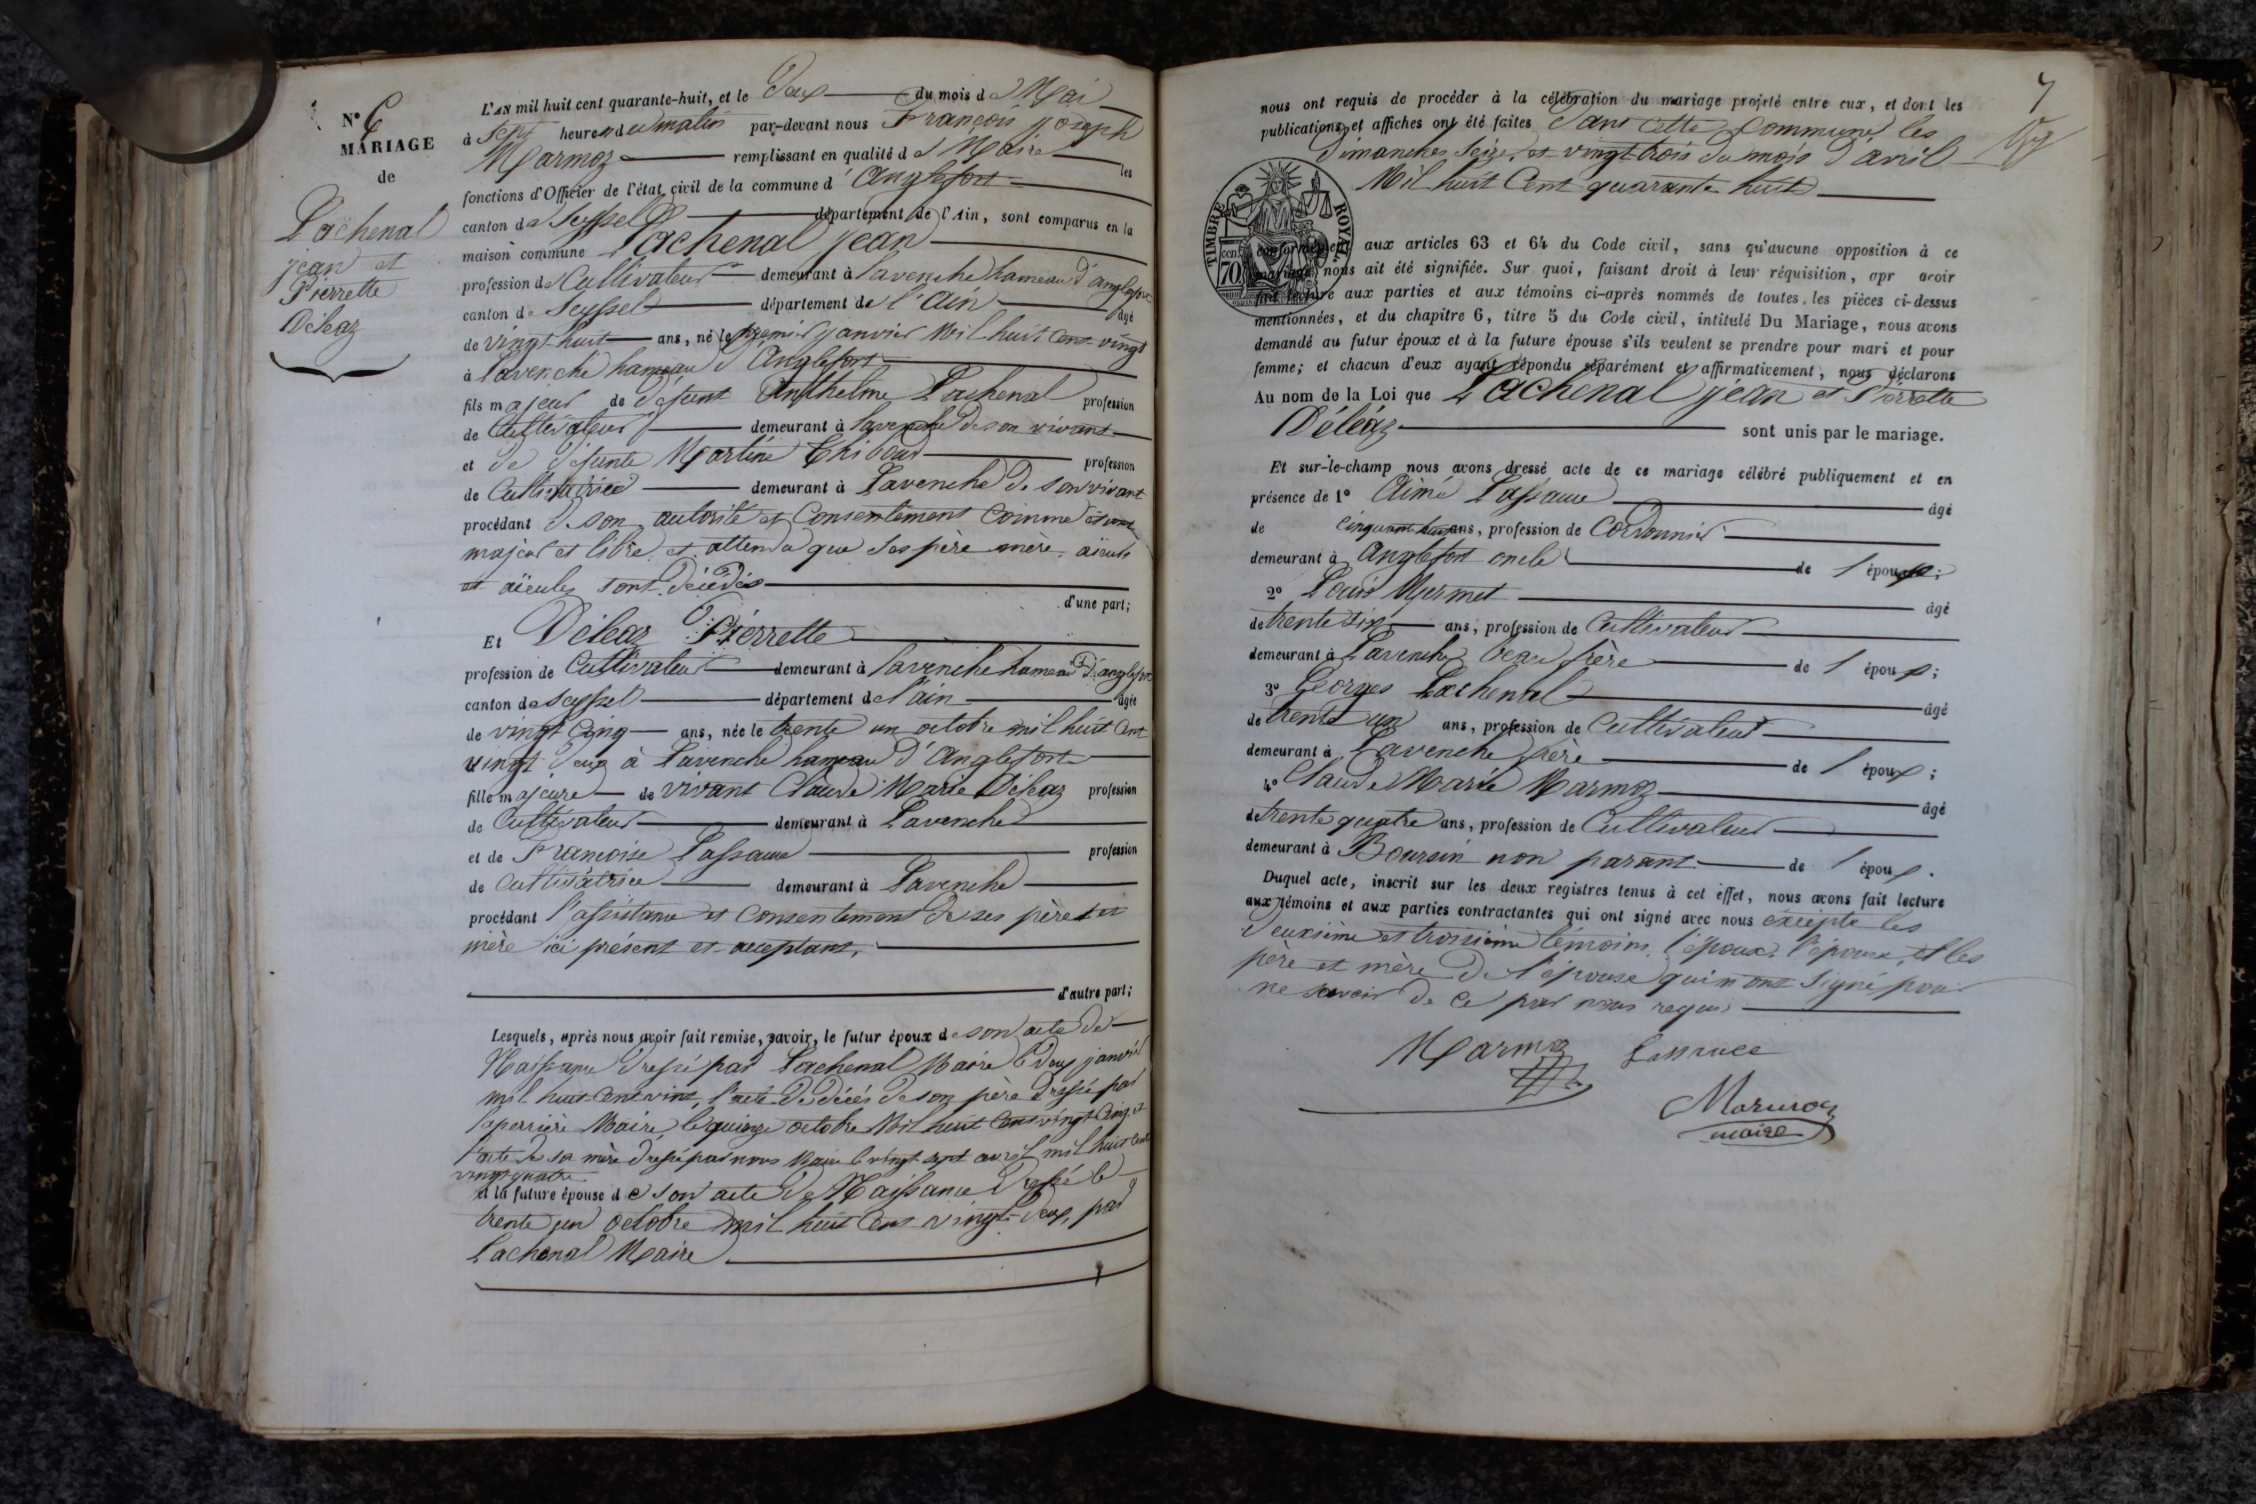 N° 6
MARIAGE
de
Lachenal
jean et
Pierrette
Déléaz
L'AN mil huit cent quarante-huit, et le Deux du mois de Mai
à sept heures du matin par-devant nous François joseph
Marmoz remplissant en qualité de Maire les
fonctions d'Officier de l'état civil de la commune d'Anglefort
canton de Seyssel département de l'Ain, sont comparus en la
maison commune Lachenal jean
profession de Cultivateur demeurant à Lavenche hameau d'anglefort
canton de Seyssel département de l'Ain âgé
de vingt huit ans, né le premier janvier Mil huit Cent vingt
à Lavenche hameau d'Anglefort
fils majeur de Défunt Anthelme Lachenal profession
de Cultivateur demeurant à Lavenche De son vivant
et de Defunte Martine profession
de Cultivatrice demeurant à Lavenche De son vivant
procédant De son autorité et Consentement Comme étant
majeur et libre et attendu que ses père mère, aïeuls
et aïeules sont Décédés
d'une part;
Et Déleaz Pierrette
profession de Cultivateur demeurant à Lavenche hameau D'anglefort
canton de Seyssel département de l'ain âgée
de vingt Cinq ans, née le trente un octobre mil huit Cent
vingt Deux à Lavenche hameau d'Anglefort
fille majeure de vivant Claude Marie Déléaz profession
de Cultivateur demeurant à Lavenche
et de Francoise Lassauce profession
de Cultivatrice demeurant à Lavenche
procédant l'assistance et Consentement De ses père et
mère ici présent et acceptant,
d'autre part;
Lesquels, après nous avoir fait remise, savoir, le futur époux de son acte De
Naissance Dressé par Lachenal Maire le Deux janvier
mil huit Cent vint, l'acte De Décès De son père Dressé par
Maire le quinze octobre Mil huit Cent vingt Cinq et
l'acte de sa mère Dressé par nous Maire le vingt sept avril mil huit Cent
vingt quatre
et la future épouse de son acte De Naissance Dressé le
trente un octobre mil huit Cent vingt Deux, par
Lachenal Maire
7
nous ont requis de procéder à la célébration du mariage projeté entre eux, et dont les
publications et affiches ont été faites Dans Cette Commune les
Dimanches Seize et vingt trois Du mois D'avril
Mil huit Cent quarante huit
TIMBRE ROYAL
70 cen
conformément aux articles 63 et 64 du Code civil, sans qu'aucune opposition à ce
mariage nous ait été signifiée. Sur quoi, faisant droit à leur réquisition, apr avoir
fait lecture aux parties et aux témoins ci-après nommés de toutes les pièces ci-dessus
mentionnées, et du chapitre 6, titre 5 du Code civil, intitulé Du Mariage, nous avons
demandé au futur époux et à la future épouse s'ils veulent se prendre pour mari et pour
femme; et chacun d'eux ayant répondu séparément et affirmativement, nous déclarons
Au nom de la Loi que Lachenal jean et Pierrette
Déléaz sont unis par le mariage.
Et sur-le-champ nous avons dressé acte de ce mariage célébré publiquement et en
présence de 1° Aimé Lassauce âgé
de ans, profession de Cordonnier
demeurant à Anglefort oncle de l'épouse;
2° Louis Mermet âgé
de trente six ans, profession de Cultivateur
demeurant à Lavenche beau frère de l'époux;
3° Georges Lachenal âgé
de trente un ans, profession de Cultivateur
demeurant à Lavenche frère de l'époux;
4° Claude Marie Marmoz âgé
de trente quatre ans, profession de Cultivateur
demeurant à Boursin non parant de l'époux.
Duquel acte, inscrit sur les deux registres tenus à cet effet, nous avons fait lecture
aux témoins et aux parties contractantes qui ont signé avec nous excepte les
Deuxième et troisième témoins, l'époux, l'épouse, et les
père et mère De l'épouse qui n'ont signé pour
ne savoir de ce par nous requis
Marmoz Lassauce
Marmoz
maire